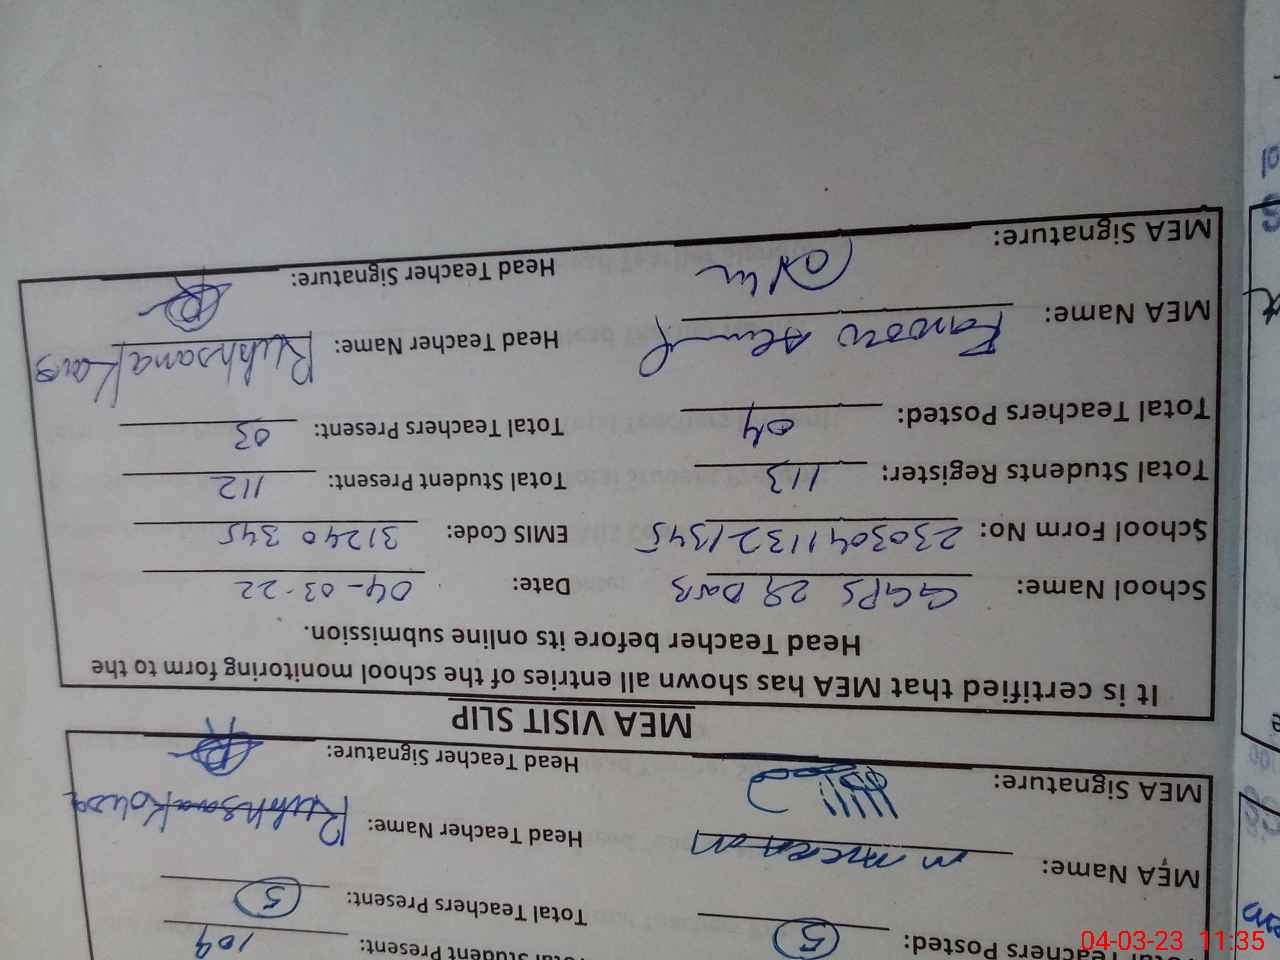 Total Teachers Posted: 5
Total Student Present: 104
Total Teachers Present: 5
MEA Name:
Head Teacher Name: Rukhsana Kousa
MEA Signature:
Head Teacher Signature:
MEA VISIT SLIP
It is certified that MEA has shown all entries of the school monitoring form to the
Head Teacher before its online submission.
School Name: GGPS 29 DarB Date: 04-03-22
School Form No: 23030411321345 EMIS Code: 31240345
Total Students Register: 113 Total Student Present: 112
Total Teachers Posted: 04 Total Teachers Present: 03
MEA Name: Head Teacher Name: Rukhsana Kous
MEA Signature: Head Teacher Signature:
04-03-23 11:35